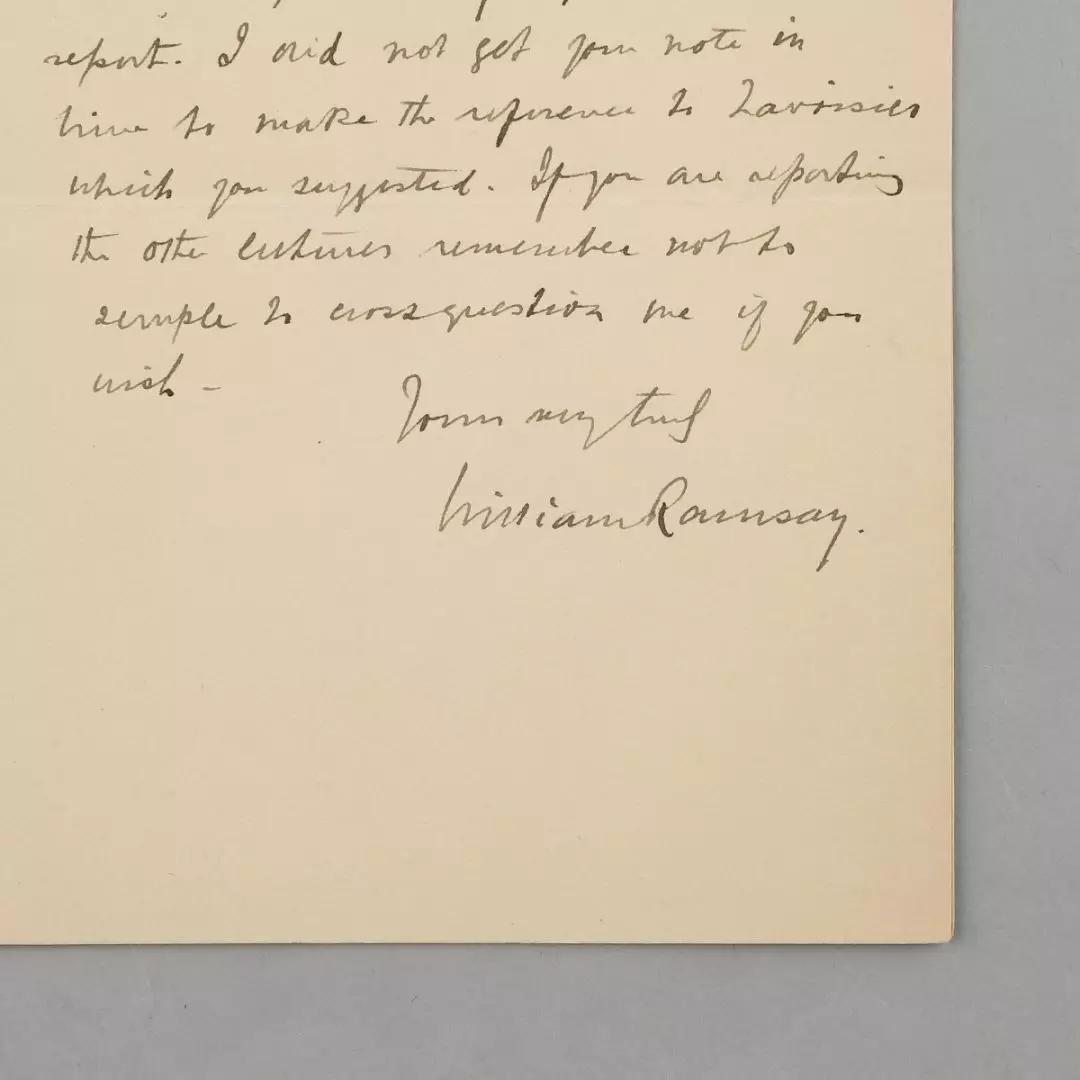 report. I did not get your note in
time to make the reference to Lavoisier
which you suggested. If you are reporting
the other lectures remember not to
scruple to crossquestion me if you
wish –
Yours very truly
William Ramsay.